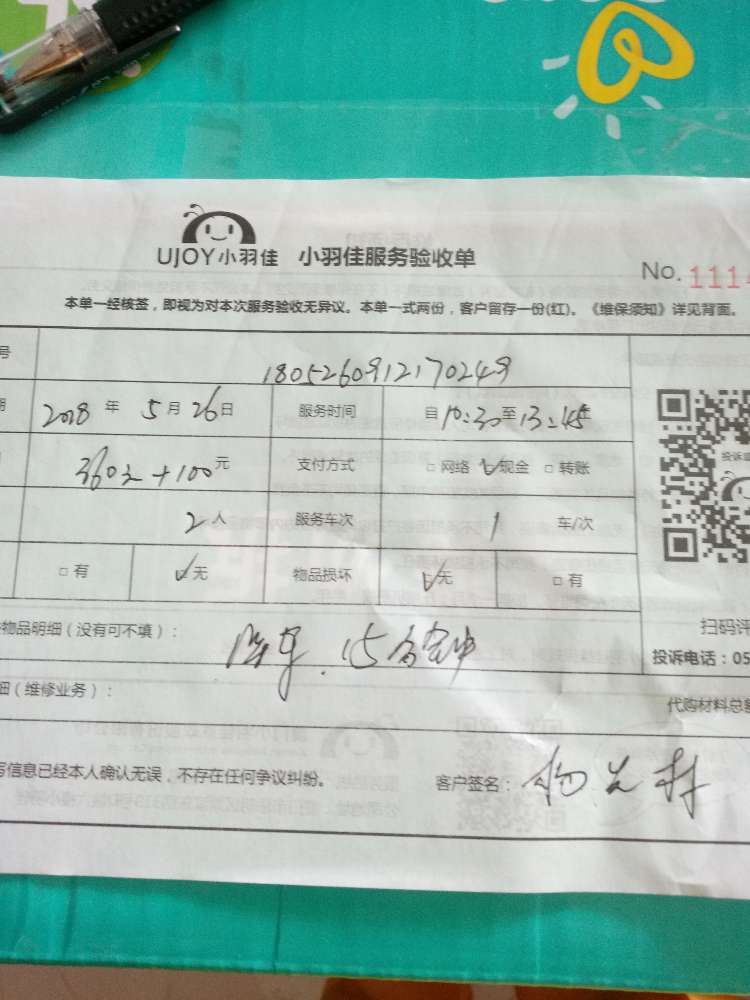 UJOY小羽佳 小羽佳服务验收单
No. 111
本单一经核签，即视为对本次服务验收无异议。本单一式两份，客户留存一份(红)。《维保须知》详见背面。
号 1805260912170249
期 2018 年 5 月 26 日 服务时间 自 10:30 至 13:45
360元+100 元 支付方式 □ 网络 ☑现金 □ 转账
2 人 服务车次 1 车/次
□ 有 ☑无 物品损坏 ☑无 □ 有
投诉或
物品明细（没有可不填）： 15分钟
扫码评
投诉电话：05
细（维修业务）： 代购材料总额
写信息已经本人确认无误，不存在任何争议纠纷。 客户签名：